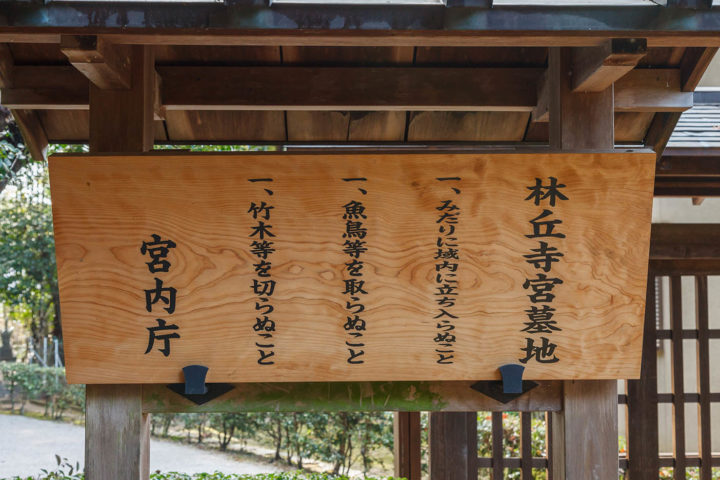 林丘寺宮墓地
一、みだりに域内に立ち入らぬこと
一、魚鳥等を取らぬこと
一、竹木等を切らぬこと
宮内庁